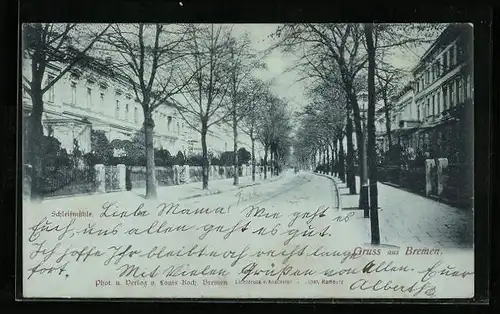 Schleifmühle.
Gruss aus Bremen.
Liebe Mama! Wie geht es
Euch, uns allen geht es gut.
Ich hoffe Ihr bleibt recht lange
fort. Mit Vielen Grüßen von Allen. Euer
Albert
Phot. u. Verlag v. Louis Koch, Bremen
Hamburg